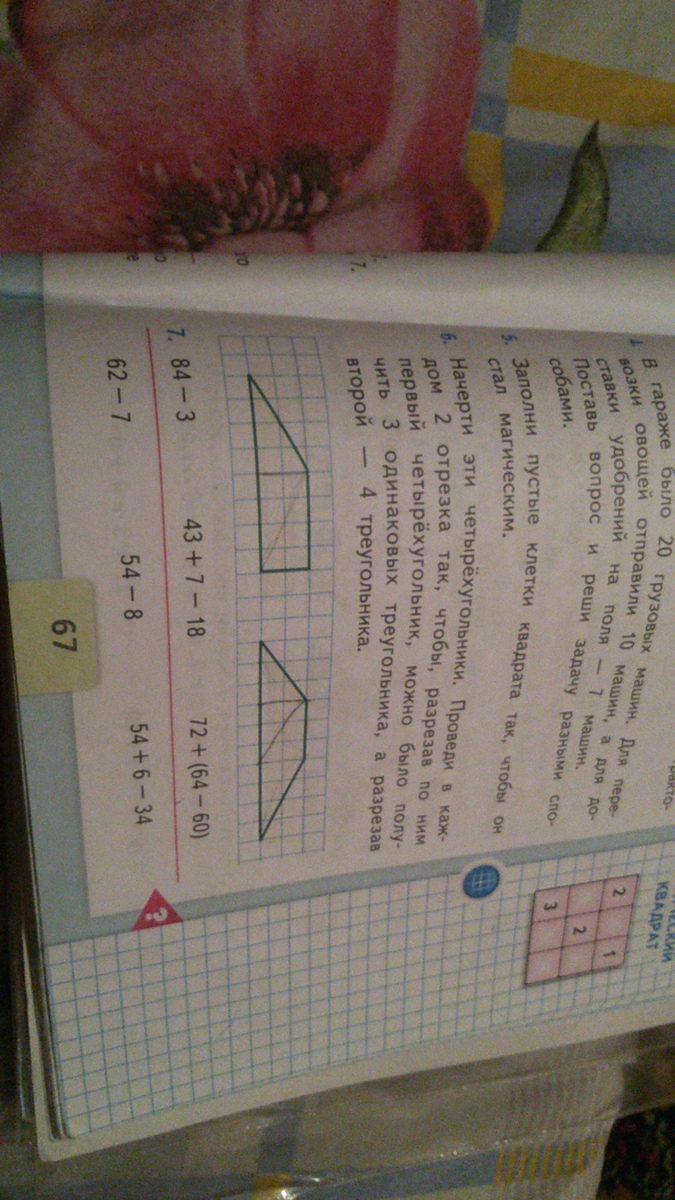 В гараже было 20 грузовых машин. Для пере-
возки овощей отправили 10 машин, а для до-
ставки удобрений на поля — 7 машин.
Поставь вопрос и реши задачу разными спо-
собами.
5. Заполни пустые клетки квадрата так, чтобы он
стал магическим.
КВАДРАТ
2 1
2
3
6. Начерти эти четырёхугольники. Проведи в каж-
дом 2 отрезка так, чтобы, разрезав по ним
первый четырёхугольник, можно было полу-
чить 3 одинаковых треугольника, а разрезав
второй — 4 треугольника.
7. 84 − 3 43 + 7 − 18 72 + (64 − 60)
62 − 7 54 − 8 54 + 6 − 34
?
67
7.